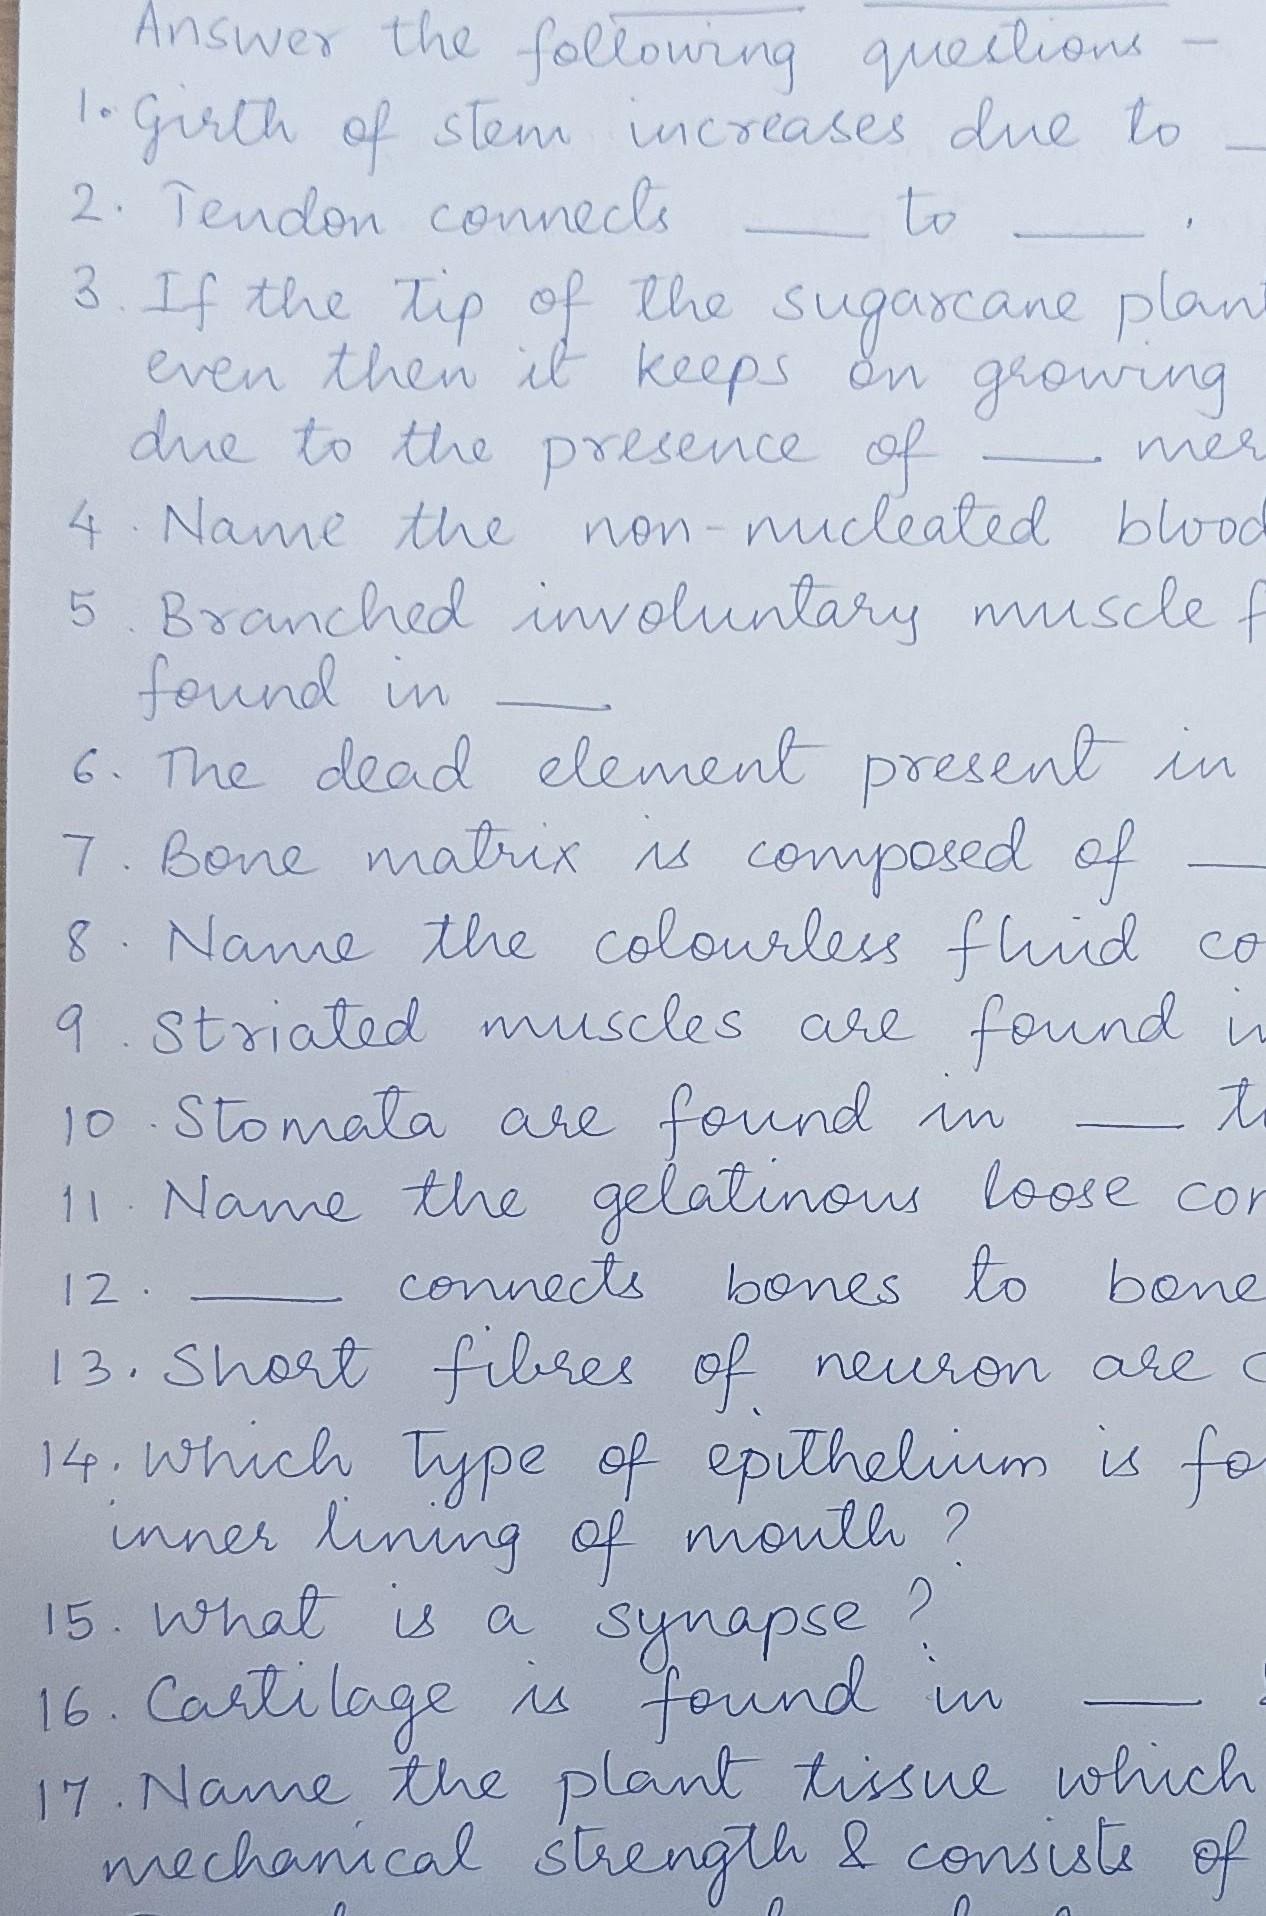 Answer the following questions -
1. Girth of stem increases due to __
2. Tendon connects ___ to ___ .
3. If the tip of the sugarcane plant
even then it keeps on growing
due to the presence of ___ mer
4. Name the non-nucleated blood
5. Branched involuntary muscle f
found in ___
6. The dead element present in
7. Bone matrix is composed of __
8. Name the colourless fluid co
9. Striated muscles are found in
10. Stomata are found in ___ ti
11. Name the gelatinous loose con
12. ____ connects bones to bone
13. Short fibres of neuron are c
14. Which type of epithelium is fo
inner lining of mouth ?
15. What is a synapse ?
16. Cartilage is found in ___
17. Name the plant tissue which
mechanical strength & consists of